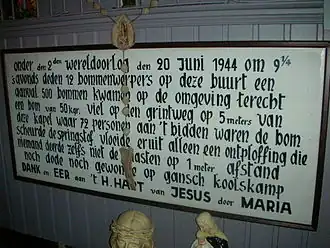 onder den 2den wereldoorlog den 20 Juni 1944 om 9¼
s'avonds deden 12 bommenwerpers op deze buurt een
aanval 500 bommen kwamen op de omgeving terecht
een bom van 50 kgr. viel op den grintweg op 5 meters van
deze kapel waar 72 personen aan 't bidden waren de bom
scheurde de springstof vloeide eruit alleen een ontploffing die
niemand dierde zelfs niet de gasten op 1 meter afstand
noch dode noch gewonde op gansch koolskamp
DANK en EER aan 't H. HART van JESUS door MARIA